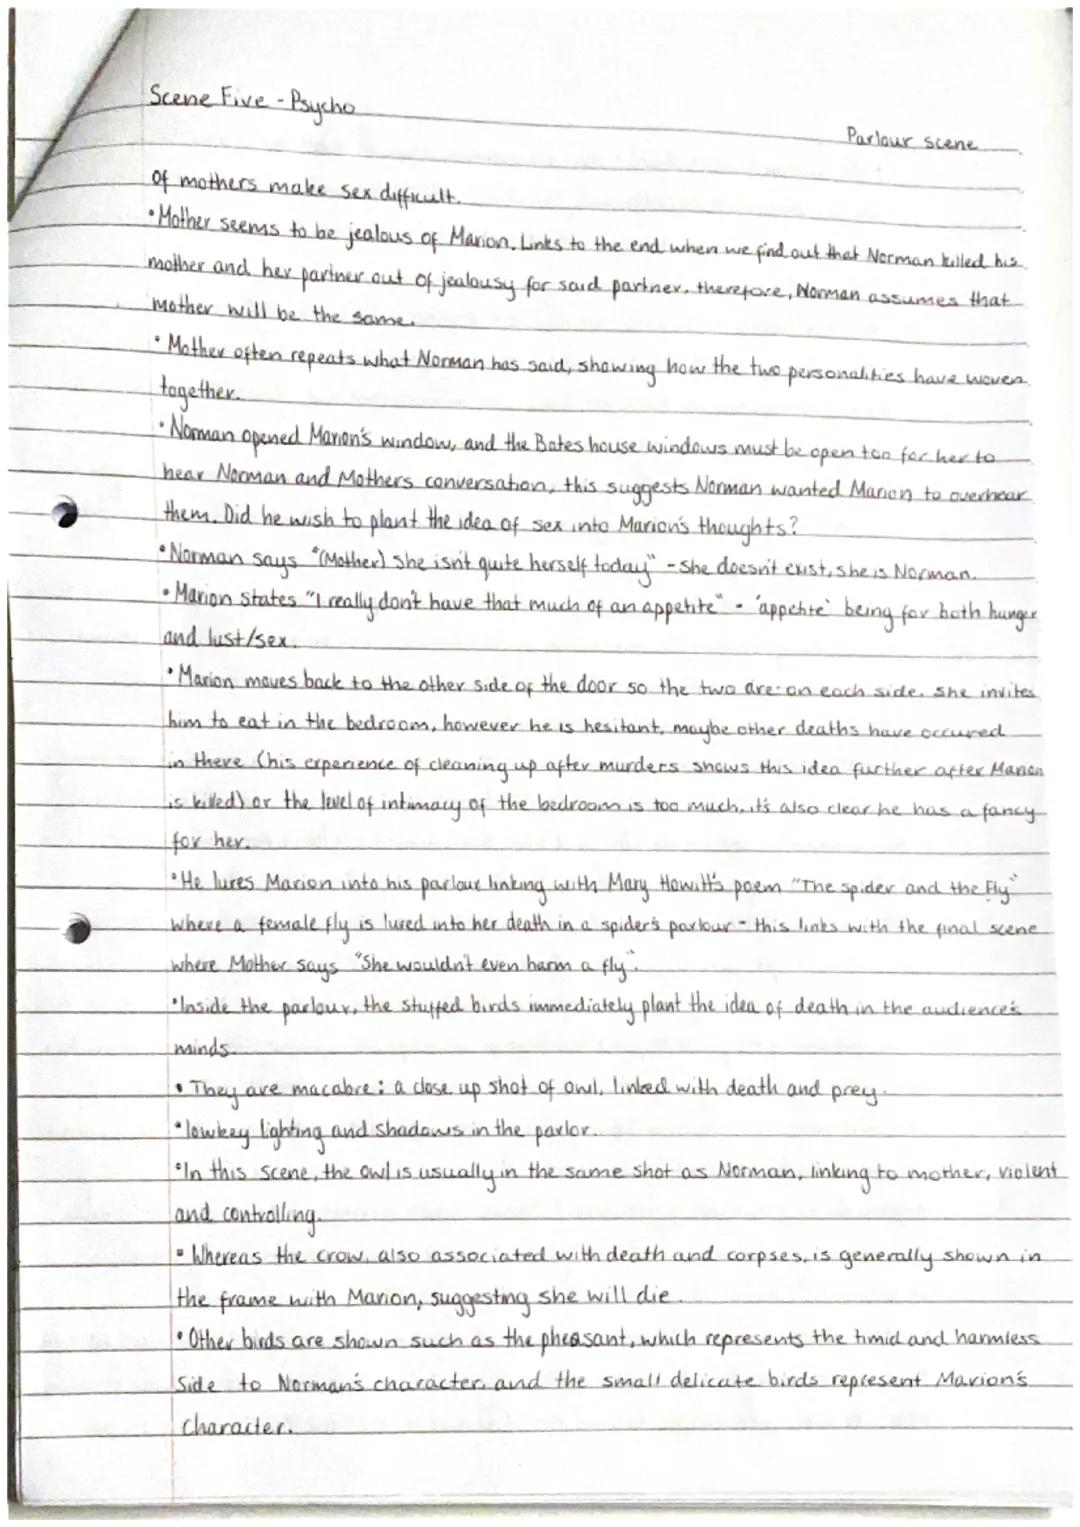 Scene Five - Psycho
Parlour scene
of mothers make sex difficult.
•Mother seems to be jealous of Marion. Links to the end when we find out that Norman killed his
mother and her partner out of jealousy for said partner. therefore, Norman assumes that
mother will be the same.
• Mother often repeats what Norman has said, showing how the two personalities have woven
together.
• Norman opened Marion's window, and the Bates house windows must be open too for her to
hear Norman and Mothers conversation, this suggests Norman wanted Marion to overhear
them. Did he wish to plant the idea of sex into Marion's thoughts?
•Norman says "(Mother) she isn't quite herself today" - She doesn't exist, she is Norman.
•Marion states "I really don't have that much of an appetite" - 'appetite' being for both hunger
and lust/sex.
•Marion moves back to the other side of the door so the two are on each side. She invites
him to eat in the bedroom, however he is hesitant, maybe other deaths have occured
in there (his experience of cleaning up after murders shows this idea further after Marion
is killed) or the level of intimacy of the bedroom is too much. it's also clear he has a fancy
for her.
•He lures Marion into his parlour linking with Mary Howitt's poem "The spider and the Fly"
where a female fly is lured into her death in a spider's parlour - this links with the final scene
where Mother says "She wouldn't even harm a fly".
•Inside the parlour, the stuffed birds immediately plant the idea of death in the audience's
minds.
• They are macabre: a close up shot of owl, linked with death and prey.
•lowkey lighting and shadows in the parlor.
•In this scene, the owl is usually in the same shot as Norman, linking to mother, violent
and controlling.
• Whereas the crow, also associated with death and corpses, is generally shown in
the frame with Marion, suggesting she will die.
•Other birds are shown such as the pheasant, which represents the timid and harmless
side to Norman's character, and the small delicate birds represent Marion's
character.